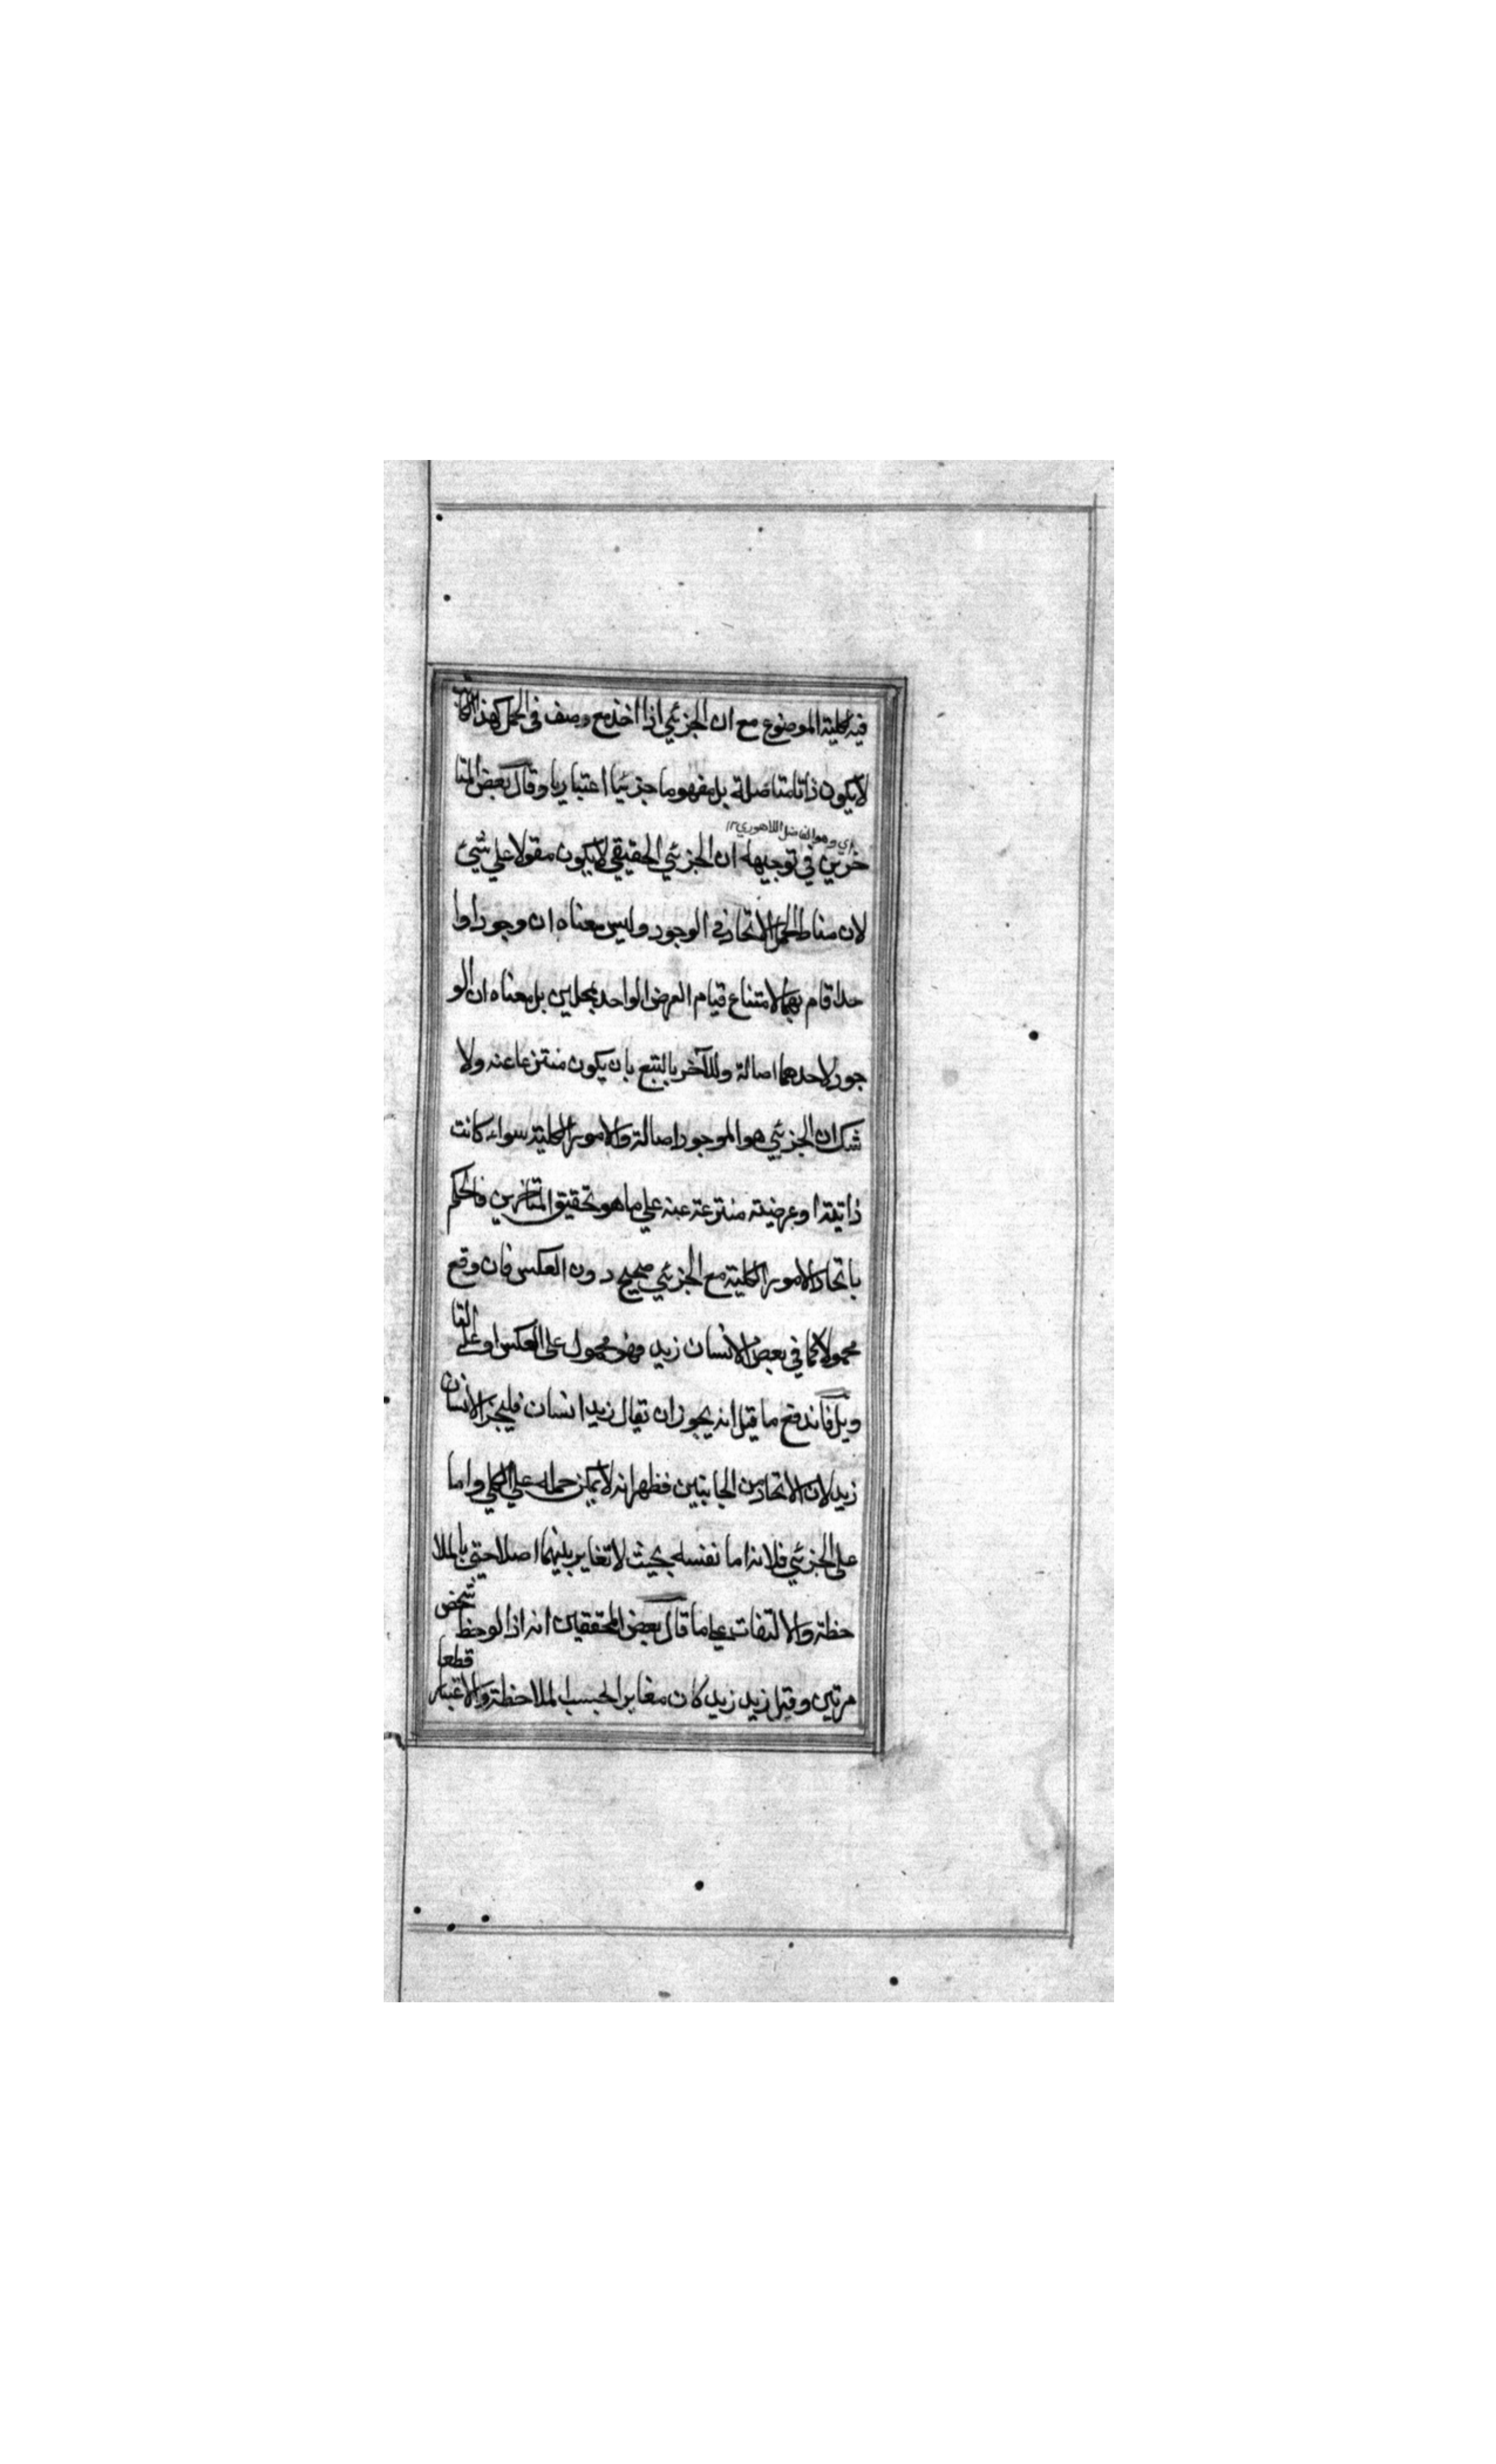 فيه كلية الموضوع مع ان الجزئي اذا اخذ مع وصف في الحمل كهذا الكاتب
لا يكون ذاتا متاصلة بل مفهوما جزئيا اعتباريا وقال بعض المتا
اي وهو الفاضل اللاهوري ١٢
خرين في توجيهه ان الجزئي الحقيقي لا يكون مقولا علي شئ
لان مناط الحمل الاتحاد في الوجود وليس معناه ان وجودا وا
حدا قام بهما لامتناع قيام العرض الواحد بمحلين بل معناه ان الو
جود لاحدهما اصالة وللآخر بالتبع بان يكون منتزعا عنه ولا
شك ان الجزئي هو الموجود اصالة والامور الكلية سواء كانت
ذاتية او عرضية منتزعة عنه علي ما هو تحقيق المتاخرين فالحكم
باتحاد الامور الكلية مع الجزئي صحيح دون العكس فان وقع
محمولا كما في بعض الانسان زيد فهو محمول علي العكس او علي التا
ويل فاندفع ما قيل انه يجوز ان يقال زيد انسان فليجز الانسان
زيد لان الاتحاد من الجانبين فظهر انه لا يمكن حمله علي الكلي واما
علي الجزئي فلانه اما نفسه بحيث لا تغاير بينهما اصلا حتي بالملا
حظة والالتفات علي ما قال بعض المحققين انه اذا لوحظ شخص
مرتين وقيل زيد زيد كان مغايرا بحسب الملاحظة والاعتبار قطعا